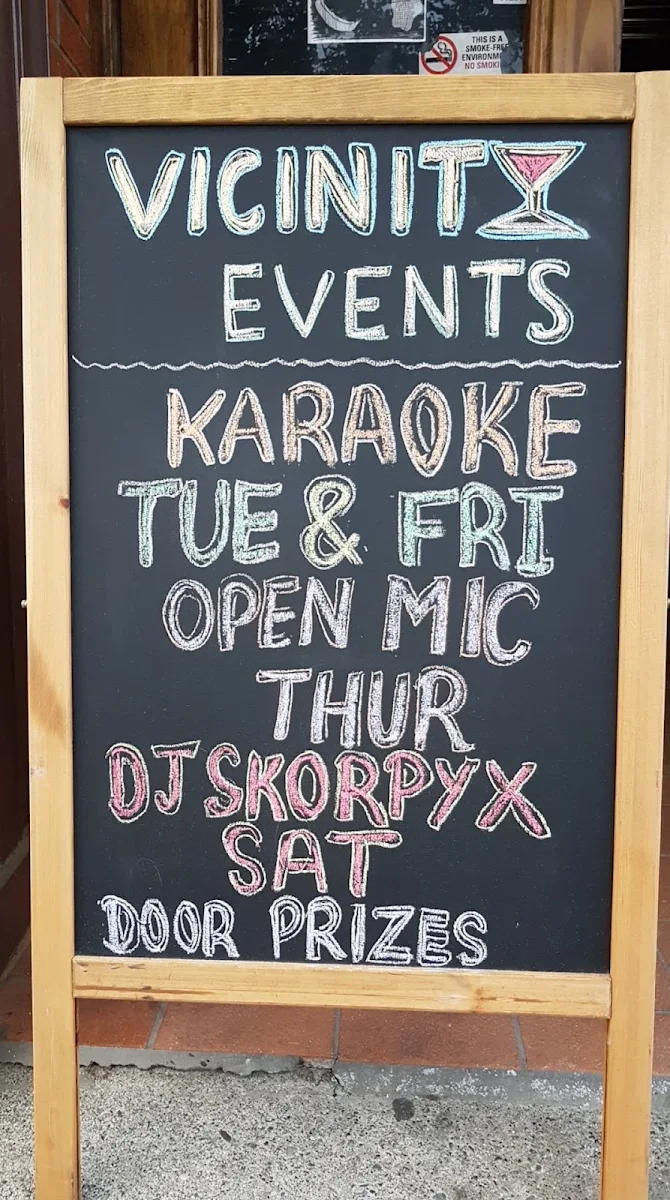 THIS IS A
SMOKE-FREE
NO SMOKI
VICINITY
EVENTS
KARAOKE
TUE & FRI
OPEN MIC
THUR
DJ SKORPYX
SAT
DOOR PRIZES